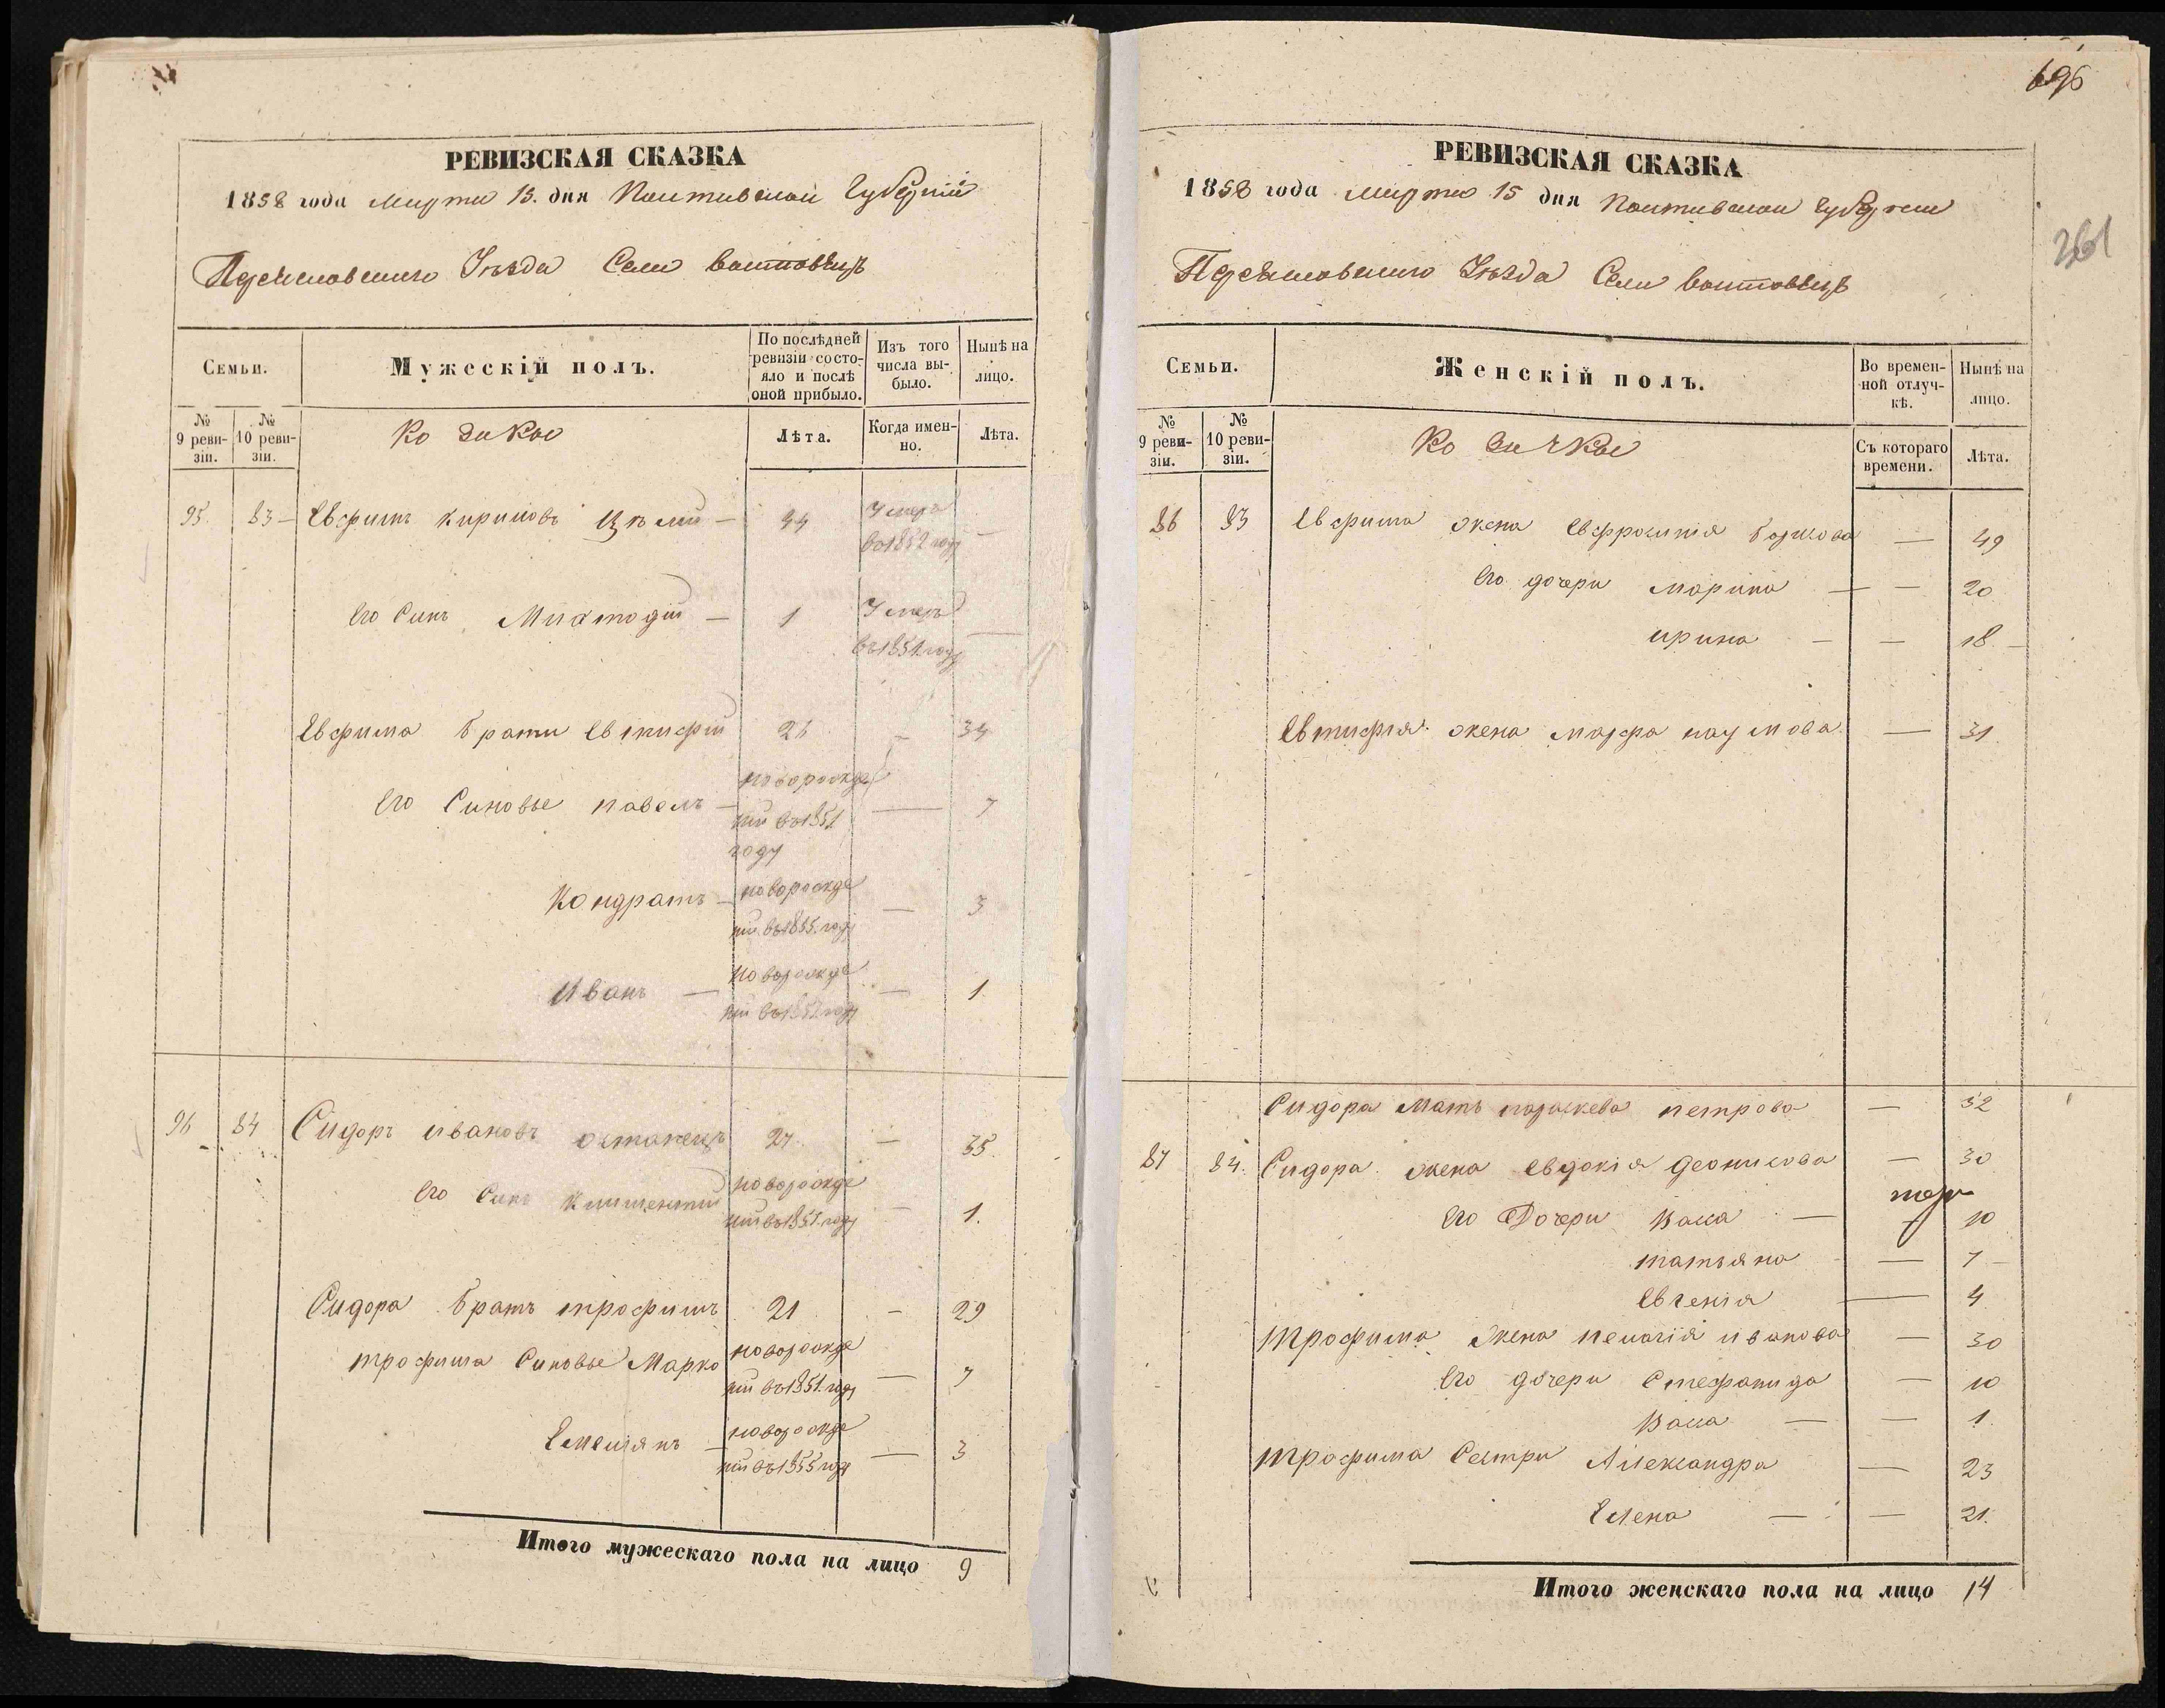 РЕВИЗСКАЯ СКАЗКА
1858 года Марта 15. дня Полтавской Губерніи
Переяславского Уѣзда Села Войтовецъ
Семьи.
Мужескій полъ.
По послѣдней ревизіи состояло и послѣ оной прибыло.
Изъ того числа выбыло.
Нынѣ на лицо.
№ 9 ревизіи.
№ 10 ревизіи.
Козаки
Лѣта.
Когда именно.
Лѣта.
95. 83 Евфимъ Кириловъ 44 Умеръ
во 1852 году
его Синъ Мифтодій 1 Умеръ
въ 1851 году
Евфима Братъ Евтифій 26 34
его Синовье павелъ новорожде 7
ній въ 1851
году
Кондратъ новорожде 3
ній въ 1855. году
Иванъ новорожде 1.
ній въ 1857 году
96 84 Сидоръ Ивановъ Останецъ 27 35.
его Синъ Климентій новорожде 1.
ній въ 1857. году
Сидора братъ трофимъ 21 29
трофима Синовье Марко новорожде 7
ній въ 1851. году
Емелянъ новорожде 3
ній въ 1855 году
Итого мужескаго пола на лицо 9
696
261
РЕВИЗСКАЯ СКАЗКА
1858 года Марта 15 дня Полтавской Губерніи
Переяславского Уѣзда Села Войтовецъ
Семьи.
Женскій полъ.
Во временной отлучкѣ.
Нынѣ на лицо.
№ 9 ревизіи.
№ 10 ревизіи.
Козачки
Съ котораго времени.
Лѣта.
86 83 Евфима жена Евфросинія Борисова 49
его дочери Марина 20
ирина 18
Евтифія жена Марфа наумова 31
Сидора Мать параскева петрова 52
87 84. Сидора жена Евдокія Деонисова 30
его Дочери Васса 10
татьяна 7
Евгенія 4
Трофима Жена пелагія иванова 30
его дочери Стефанида 10
Васса 1.
Трофима Сестри Александра 23
Елена 21.
Итого женскаго пола на лицо 14